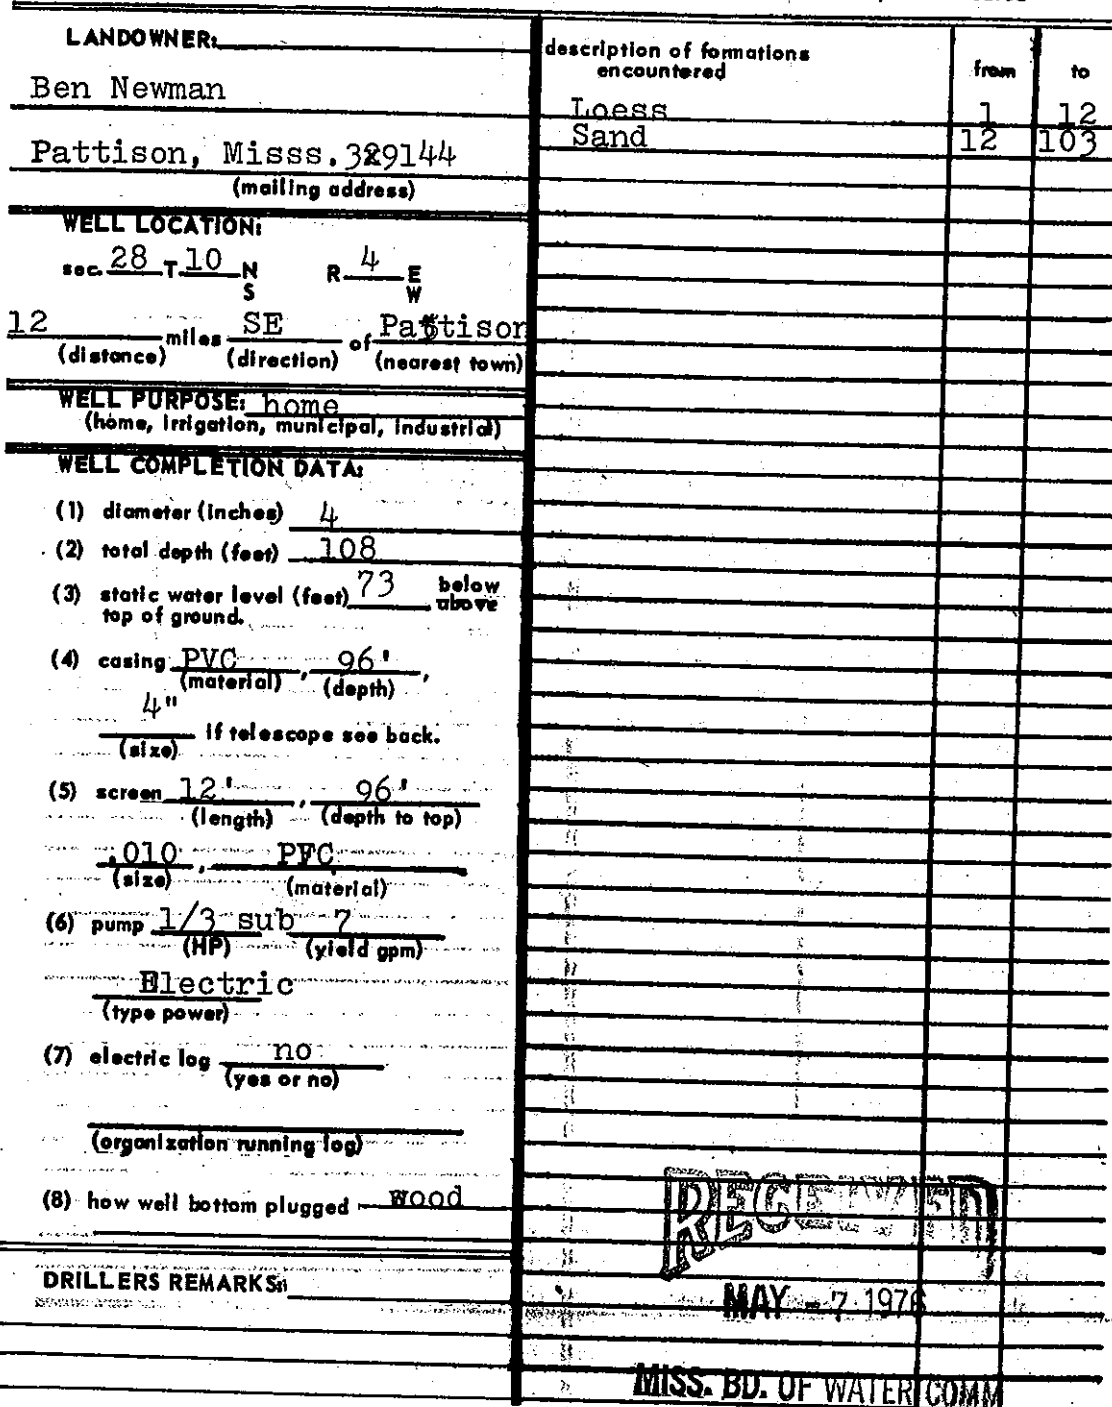 LANDOWNER:
Ben Newman
Pattison, Misss. 39144
(mailing address)
WELL LOCATION:
sec. 28 T. 10 N R. 4 E
S W
12 miles SE of Pattison
(distance) (direction) (nearest town)
WELL PURPOSE: home
(home, irrigation, municipal, industrial)
WELL COMPLETION DATA:
(1) diameter (inches) 4
(2) total depth (feet) 108
(3) static water level (feet) 73 below
above
top of ground.
(4) casing PVC, 96',
(material) (depth)
4" if telescope see back.
(size)
(5) screen 12', 96'
(length) (depth to top)
.010, PFC
(size) (material)
(6) pump 1/3 sub 7
(HP) (yield gpm)
Electric
(type power)
(7) electric log no
(yes or no)
(organization running log)
(8) how well bottom plugged wood
DRILLERS REMARKS:
description of formations
encountered from to
Loess 1 12
Sand 12 103
RECEIVED
MAY - 7 1976
MISS. BD. OF WATER COMM